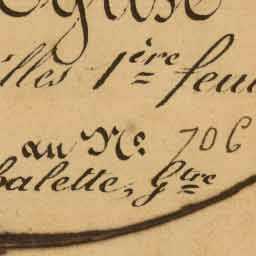 Eglise
illes 1ère feui
au No. 706
balette, Gtre